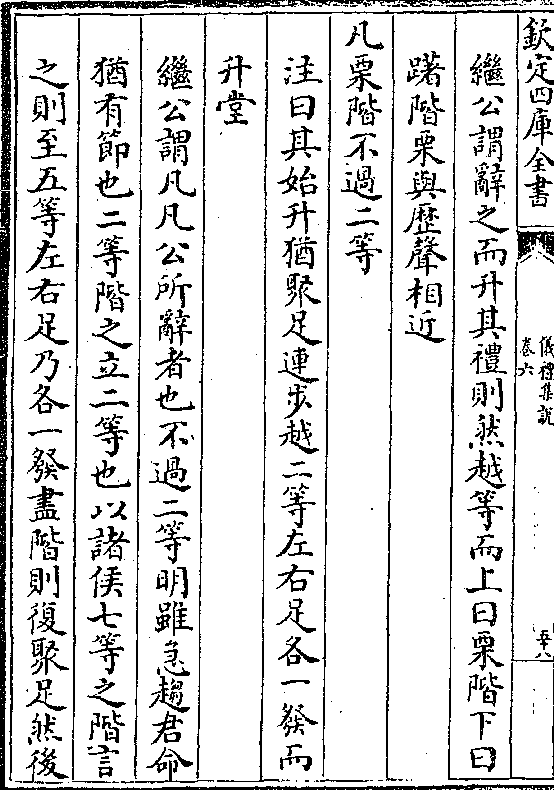 欽定四庫全書
儀禮集說
卷六
五十八
繼公謂辭之而升其禮則然越等而上曰栗階下曰
躇階栗與歴聲相近
凡栗階不過二等
注曰其始升猶聚足連步越二等左右足各一發而
升堂
繼公謂凡凡公所辭者也不過二等明雖急趨君命
猶有節也二等階之立二等也以諸侯七等之階言
之則至五等左右足乃各一發盡階則復聚足然後